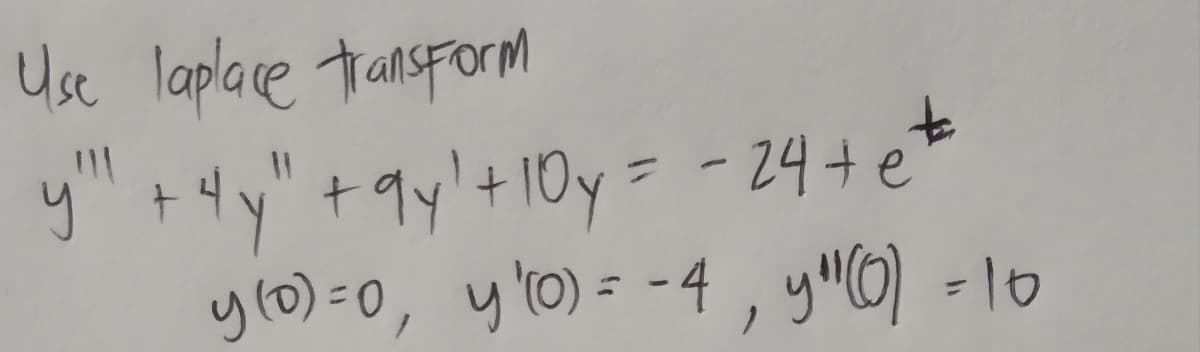 Use laplace transform
y''' + 4y" + 9y' + 10y = - 24 + e^t
y(0) = 0, y'(0) = - 4, y"(0) = 10